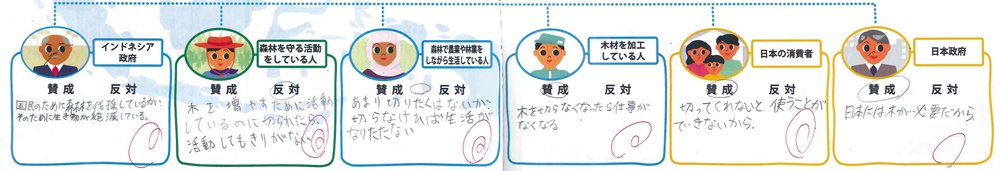 インドネシア
政府
賛成 反対
国民のために森林を伐採しているが、
そのために生き物が絶滅している。
森林を守る活動
をしている人
賛成 反対
木を増やすために活動
しているのに切られたら、
活動してもきりがない
森林で農業や林業を
しながら生活している人
賛成 反対
あまり切りたくはないが、
切らなければ生活が
なりたたない
木材を加工
している人
賛成 反対
木を切らなくなったら仕事が
なくなる
日本の消費者
賛成 反対
切ってくれないと使うことが
できないから。
日本政府
賛成 反対
日本には木が必要だから。